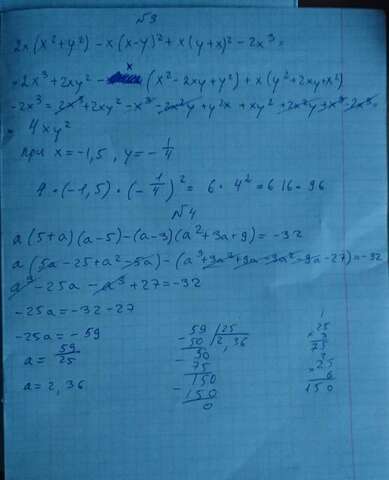 №3
2x(x²+y²) - x(x-y)² + x(y+x)² - 2x³ =
= 2x³ + 2xy² - x(x² - 2xy + y²) + x(y² + 2xy + x²)
- 2x³ = 2x³ + 2xy² - x³ - 2x²y + y²x + xy² + 2x²y + x³ - 2x³ =
= 4xy²
при x = -1,5 , y = - 1/4
4 · (-1,5) · (- 1/4)² = 6 · 4² = 6 16 = 96
№4
a(5+a)(a-5) - (a-3)(a²+3a+9) = -32
a(5a - 25 + a² - 5a) - (a³ + 3a² + 9a - 3a² - 9a - 27) = -32
a³ - 25a - a³ + 27 = -32
-25a = -32 - 27
-25a = -59
a = 59/25
a = 2,36
59 | 25
50 | 2,36
90
75
150
150
0
1
25
3
75
3
25
6
150